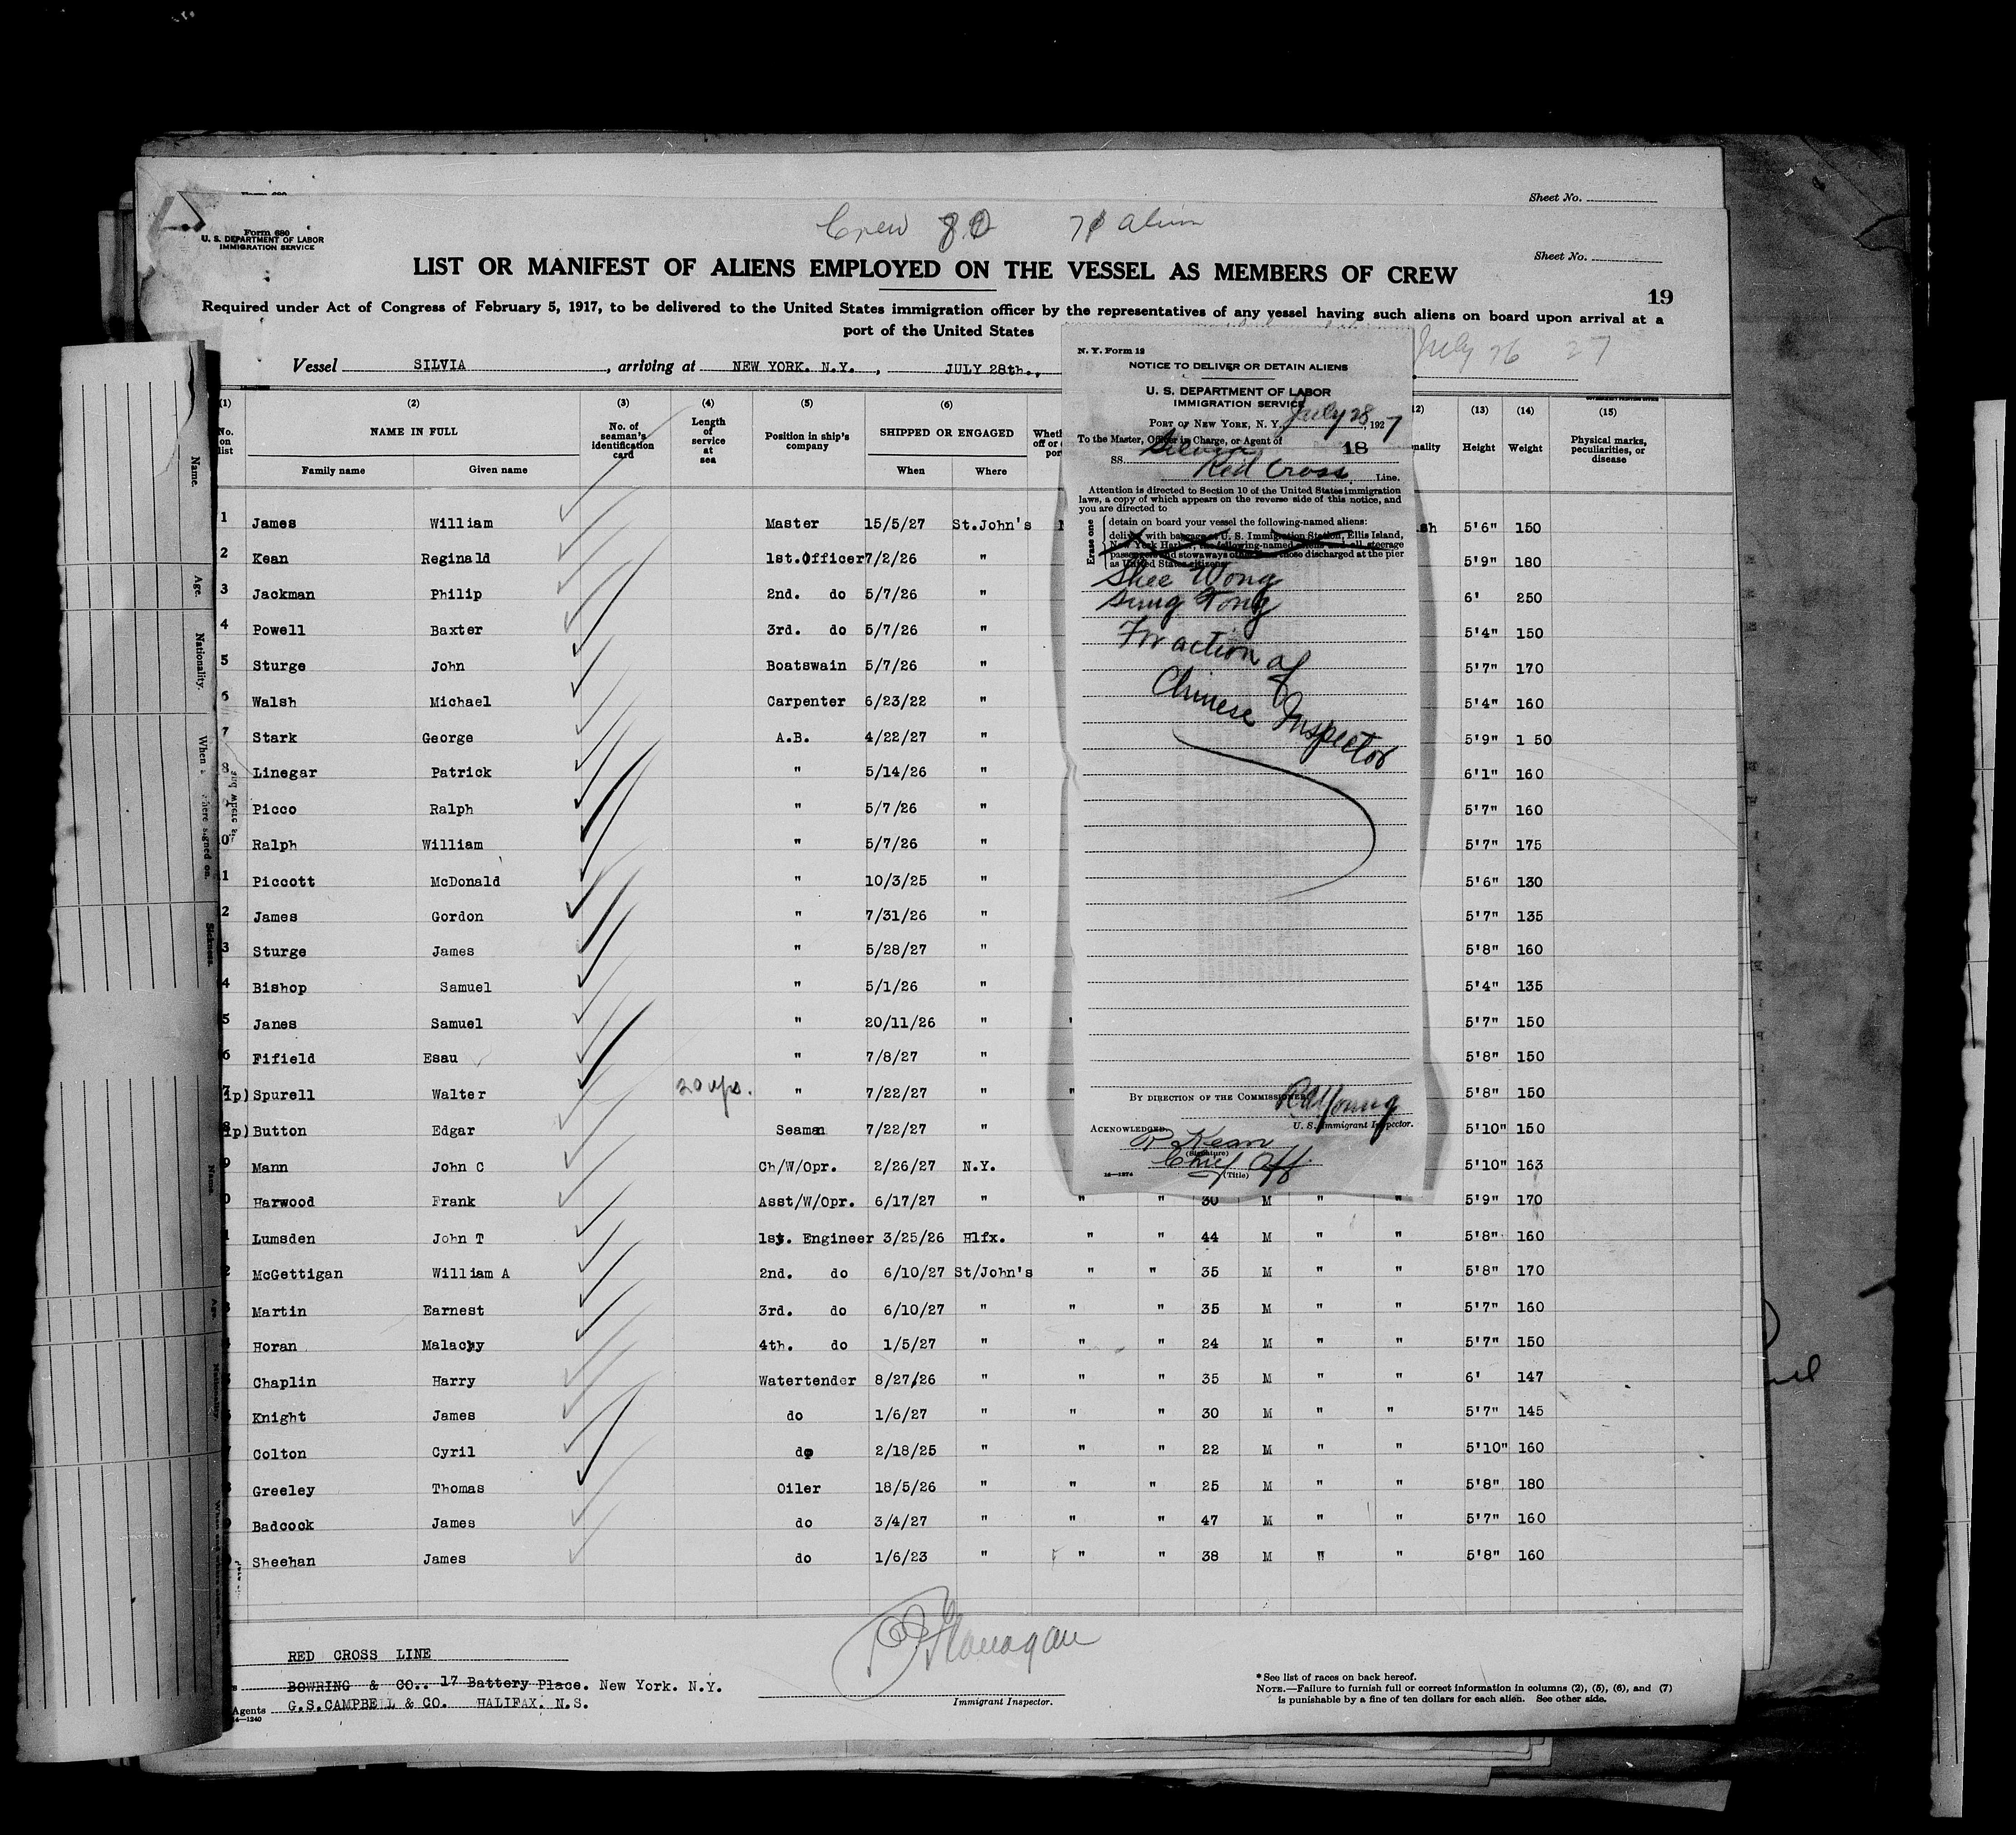 Form 680
Sheet No.
Crew 80 71 Alien
Form 680
U. S. DEPARTMENT OF LABOR
IMMIGRATION SERVICE
Sheet No.
LIST OR MANIFEST OF ALIENS EMPLOYED ON THE VESSEL AS MEMBERS OF CREW
19
Required under Act of Congress of February 5, 1917, to be delivered to the United States immigration officer by the representatives of any vessel having such aliens on board upon arrival at a
port of the United States
Vessel SILVIA, arriving at NEW YORK. N.Y., JULY 28th., July 26 27
(1) (2) (3) (4) (5) (6) (13) (14) (15)
No. on list NAME IN FULL No. of seaman's identification card Length of service at sea Position in ship's company SHIPPED OR ENGAGED Height Weight Physical marks, peculiarities, or disease
Family name Given name When Where
1 James William Master 15/5/27 St.John's 5'6" 150
2 Kean Reginald 1st.Officer 7/2/26 " 5'9" 180
3 Jackman Philip 2nd. do 5/7/26 " 6' 250
4 Powell Baxter 3rd. do 5/7/26 " 5'4" 150
5 Sturge John Boatswain 5/7/26 " 5'7" 170
6 Walsh Michael Carpenter 6/23/22 " 5'4" 160
7 Stark George A.B. 4/22/27 " 5'9" 1 50
8 Linegar Patrick " 5/14/26 " 6'1" 160
Picco Ralph " 5/7/26 " 5'7" 160
0 Ralph William " 5/7/26 " 5'7" 175
1 Piccott McDonald " 10/3/25 " 5'6" 130
2 James Gordon " 7/31/26 " 5'7" 135
3 Sturge James " 5/28/27 " 5'8" 160
4 Bishop Samuel " 5/1/26 " 5'4" 135
5 Janes Samuel " 20/11/26 " " 5'7" 150
6 Fifield Esau " 7/8/27 " 5'8" 150
7 ip) Spurell Walter 20 yrs. " 7/22/27 " " 5'8" 150
8 ip) Button Edgar Seaman 7/22/27 " 5'10" 150
9 Mann John C Ch/W/Opr. 2/26/27 N.Y. 5'10" 163
0 Harwood Frank Asst/W/Opr. 6/17/27 " " " 30 M " " 5'9" 170
1 Lumsden John T 1st. Engineer 3/25/26 Hlfx. " " 44 M " " 5'8" 160
2 McGettigan William A 2nd. do 6/10/27 St/John's " " 35 M " " 5'8" 170
3 Martin Earnest 3rd. do 6/10/27 " " " 35 M " " 5'7" 160
4 Horan Malachy 4th. do 1/5/27 " " " 24 M " " 5'7" 150
Chaplin Harry Watertender 8/27/26 " " " 35 M " " 6' 147
Knight James do 1/6/27 " " " 30 M " " 5'7" 145
Colton Cyril do 2/18/25 " " " 22 M " " 5'10" 160
Greeley Thomas Oiler 18/5/26 " " " 25 M " " 5'8" 180
Badcock James do 3/4/27 " " " 47 M " " 5'7" 160
Sheehan James do 1/6/23 " " " 38 M " " 5'8" 160
N. Y. Form 12
NOTICE TO DELIVER OR DETAIN ALIENS
U. S. DEPARTMENT OF LABOR
IMMIGRATION SERVICE
PORT OF NEW YORK, N. Y., July 28, 1927
To the Master, Officer in Charge, or Agent of 18
SS. Silvia
Red Cross Line.
Attention is directed to Section 10 of the United States immigration
laws, a copy of which appears on the reverse side of this notice, and
you are directed to
Erase one
detain on board your vessel the following-named aliens:
deliver with baggage at U. S. Immigration Station, Ellis Island,
New York Harbor, the following-named aliens and all steerage
passengers and stowaways other than those discharged at the pier
as United States citizens:
Shee Wong
Sung Tong
For action of
Chinese Inspector
BY DIRECTION OF THE COMMISSIONER:
Young
U. S. Immigrant Inspector.
ACKNOWLEDGED:
R Kean
(Signature)
Chief Off.
(Title)
16—1274
RED CROSS LINE
BOWRING & CO.. 17 Battery Place. New York. N.Y.
Agents G.S.CAMPBELL & CO. HALIFAX. N.S.
14—1240
Flanagan
Immigrant Inspector.
* See list of races on back hereof.
NOTE.—Failure to furnish full or correct information in columns (2), (5), (6), and (7)
is punishable by a fine of ten dollars for each alien. See other side.
Name.
Age.
Nationality.
Sickness.